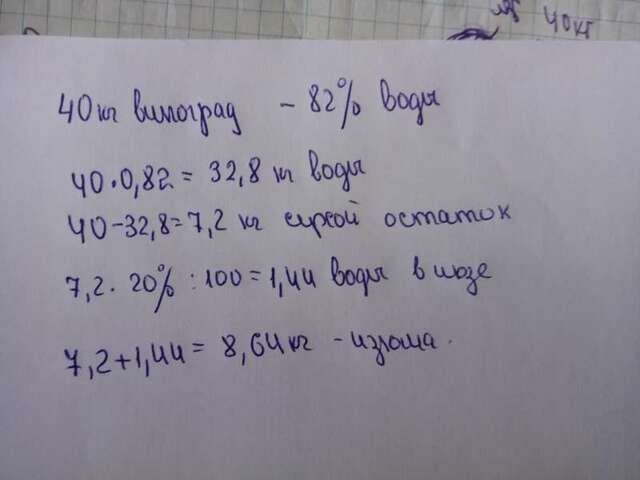 40 кг виноград - 82% воды
40·0,82 = 32,8 кг воды
40-32,8=7,2 кг сухой остаток
7,2·20% :100=1,44 воды в изюме
7,2+1,44 = 8,64 кг - изюма.
40кг